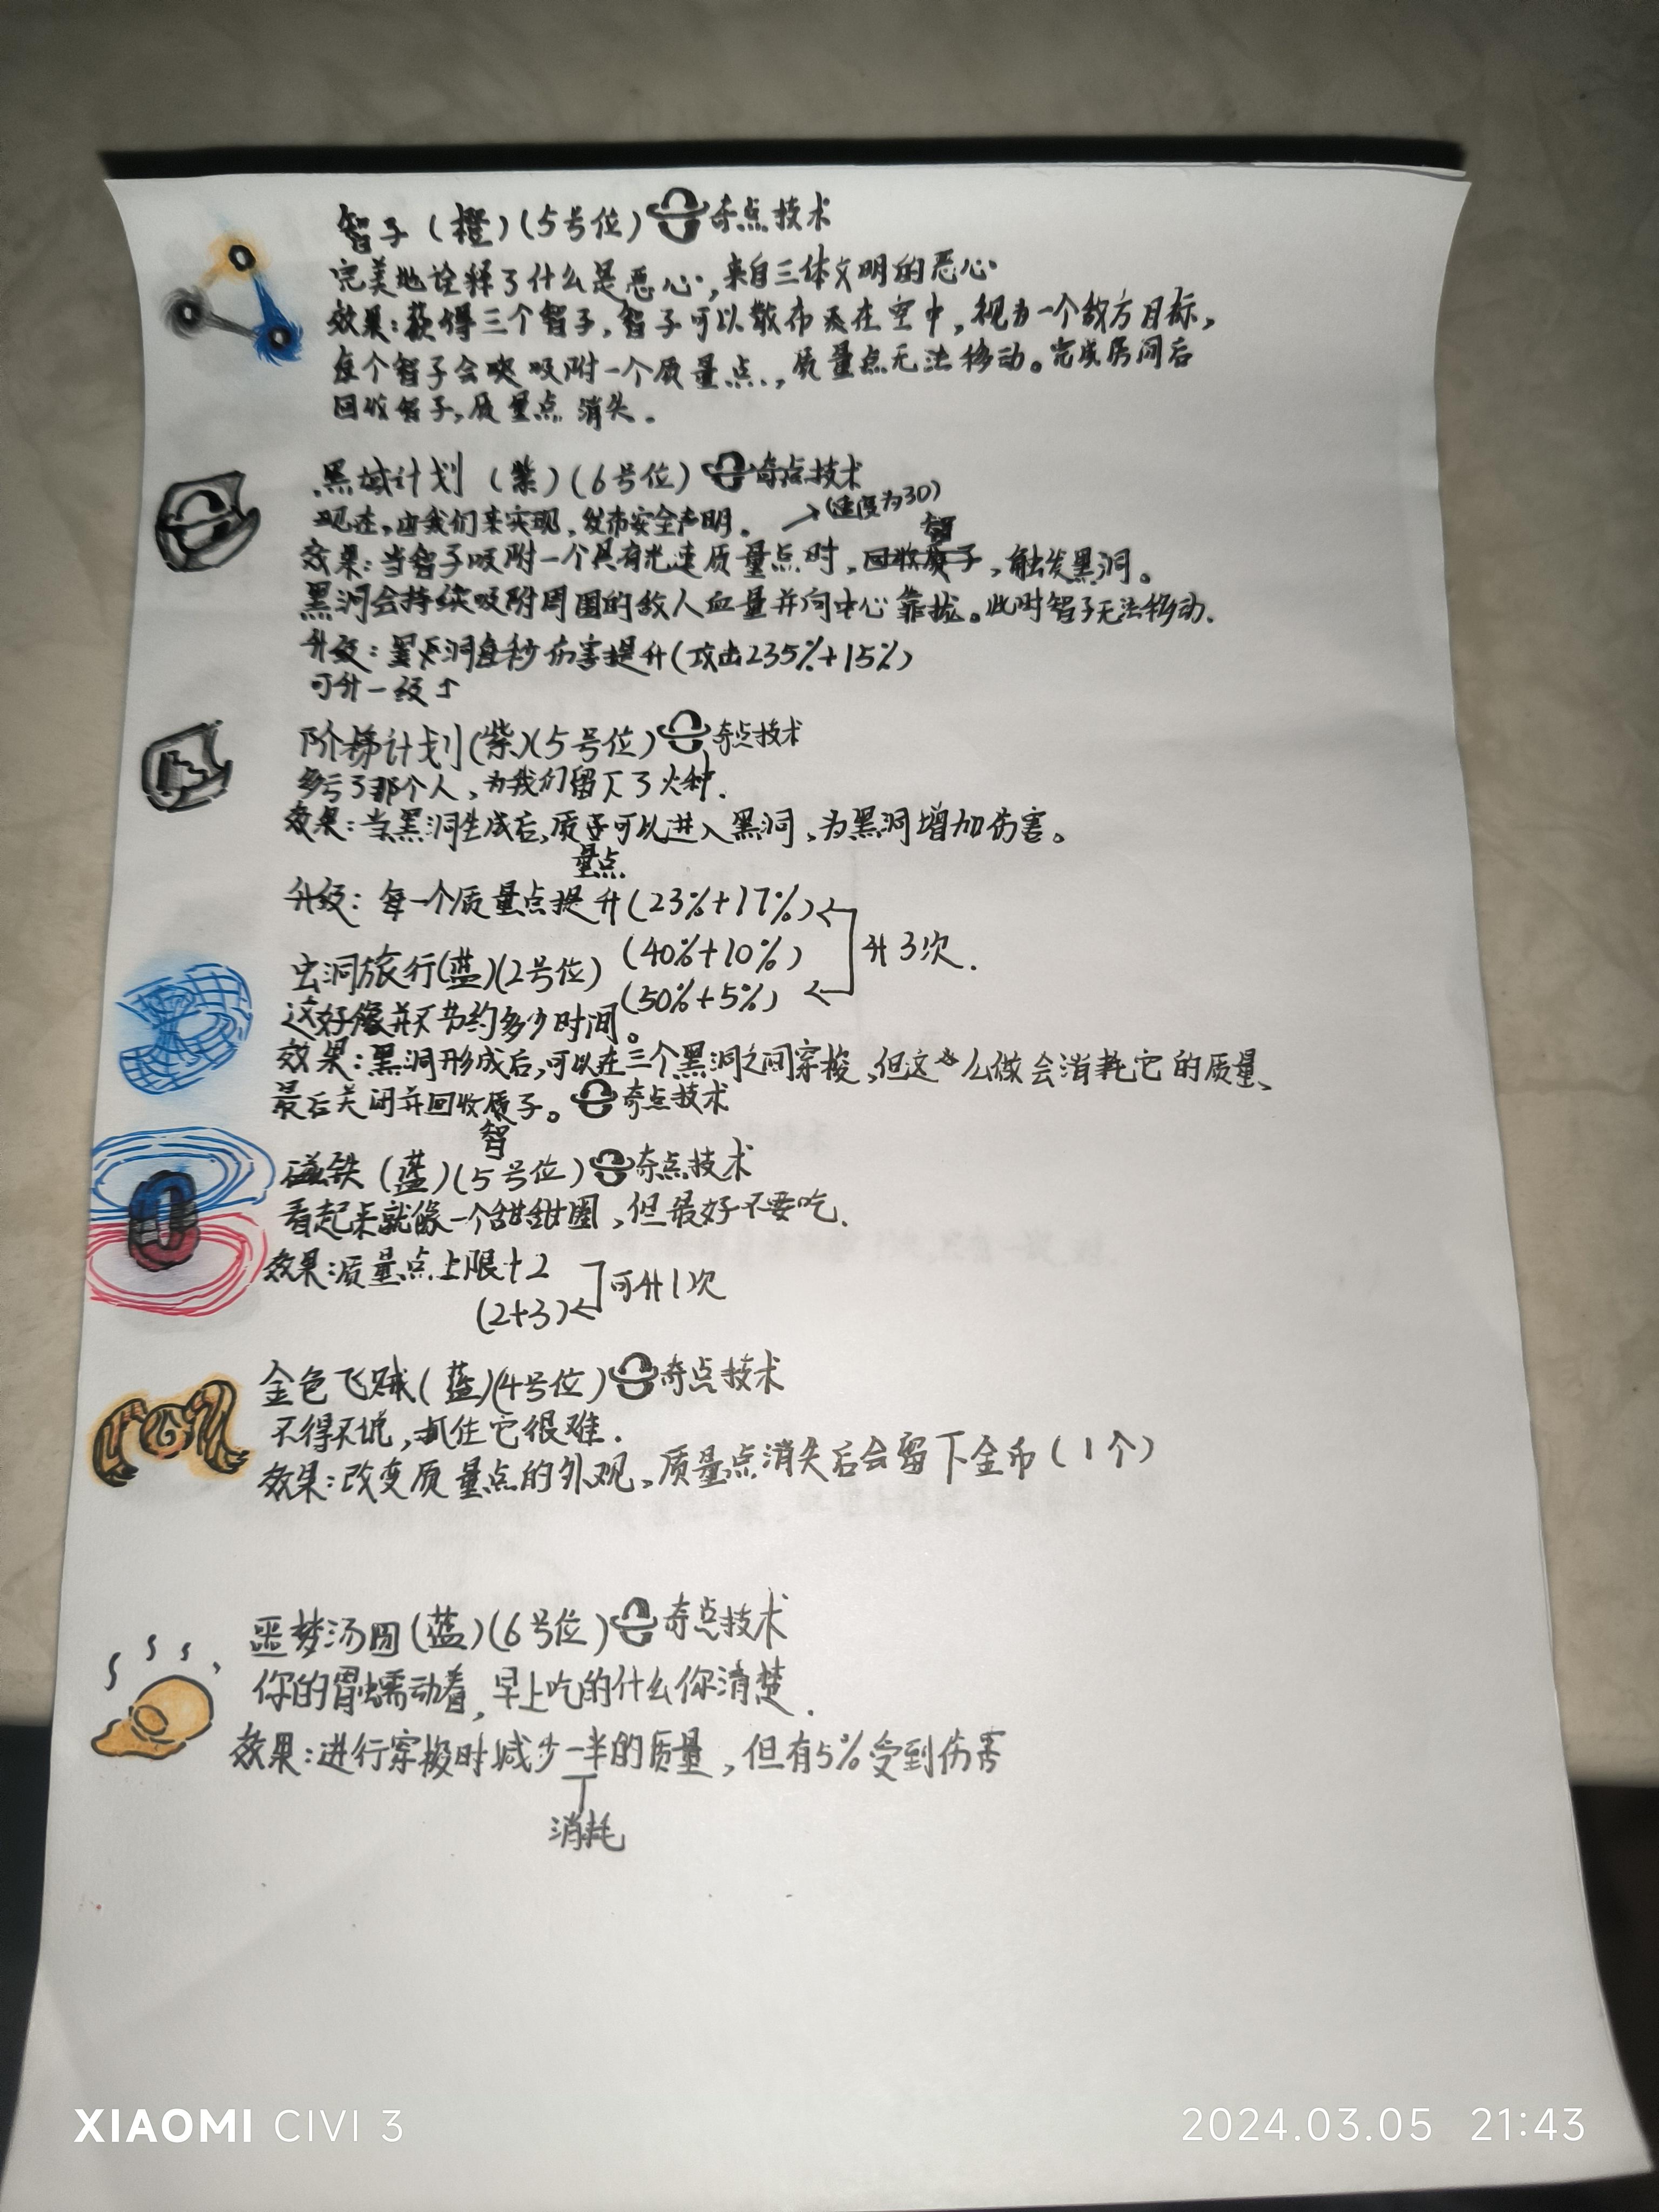 智子(橙)(5号位)奇点技术
完美地诠释了什么是恶心,来自三体文明的恶心
效果:获得三个智子,智子可以散布在空中,视为一个敌方目标,
每个智子会吸附一个质量点,质量点无法移动。完成房间后
回收智子,质量点消失.
黑域计划(紫)(6号位)奇点技术
现在,由我们来实现,发布安全声明。
(速度为30)
智
效果:当智子吸附一个具有光速质量点时,回收质子,触发黑洞。
黑洞会持续吸附周围的敌人血量并向中心靠拢。此时智子无法移动.
升级:黑洞每秒伤害提升(攻击235%+15%)
可升一级↑
阶梯计划(紫)(5号位)奇点技术
多亏了那个人,为我们留下了火种.
效果:当黑洞生成后,质子可以进入黑洞,为黑洞增加伤害。
量点
升级:每一个质量点提升(23%+17%)
(40%+10%) 升3次.
虫洞旅行(蓝)(2号位)
(50%+5%)
这好像并不节约多少时间。
效果:黑洞形成后,可以在三个黑洞之间穿梭,但这么做会消耗它的质量、
最后关闭并回收质子。奇点技术
智
磁铁(蓝)(5号位)奇点技术
看起来就像一个甜甜圈,但最好不要吃.
效果:质量点上限+2
可升1次
(2+3)
金色飞贼(蓝)(4号位)奇点技术
不得不说,抓住它很难.
效果:改变质量点的外观、质量点消失后会留下金币(1个)
噩梦汤圆(蓝)(6号位)奇点技术
你的胃蠕动着,早上吃的什么你清楚.
效果:进行穿梭时减少一半的质量,但有5%受到伤害
消耗
XIAOMI CIVI 3
2024.03.05 21:43